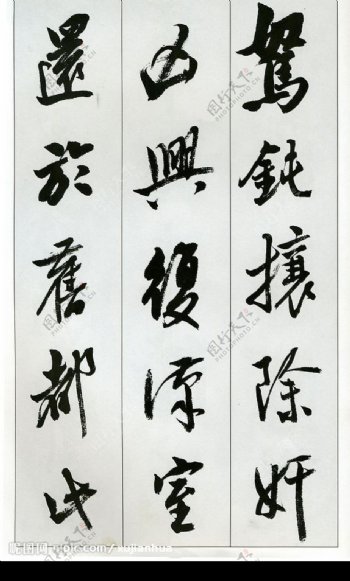 駑鈍攘除奸
凶興復漢室
還於舊都此
昵图网 nipic.com/xujianhua
图行天下 PHOTOPHOTO.CN